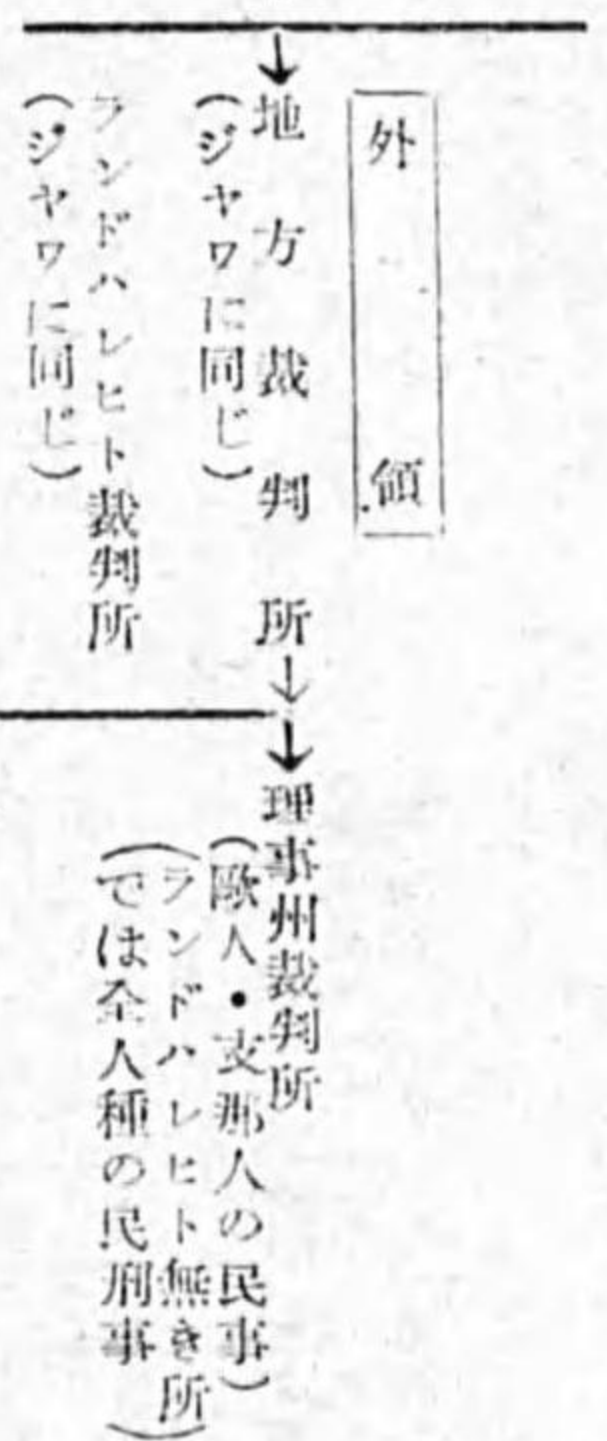 外領
地方裁判所
(ジャワに同じ)
ランドハレヒト裁判所
(ジャワに同じ)
理事州裁判所
(歐人・支那人の民事)
(ランドハレヒト無き所
では全人種の民刑事)